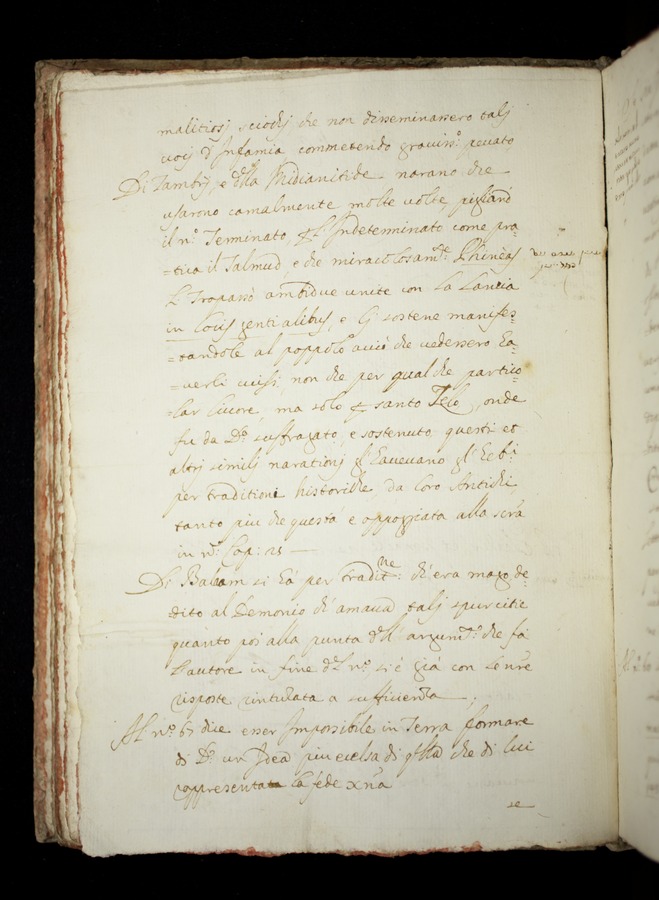 malitiosj sciochj che non disseminassero talj
vocj d'Infamia commetendo graviss.º peccato
Di Zambrj, e dlla Midianitide narano che
usarono carnalmente molte volte, pigliand
il n.º Terminato, p l'Indeterminato come pra
=tica il Talmud, e che miracolosam.te Phineas
li Trapassò ambidue unite con la Lancia
in locis genitalibus, e li sostene manifes=
=tandole al poppolo acciò che vedessero ha=
=verli uccisi, non che per qualche partico
=lar livore, ma solo p santo Zelo, onde
fu da D.º suffragato, e sostenuto, questi et
altrj similj narationj gl'havevano gl'Heb.i
per traditioni historiche, da loro Antichi
tanto piu che questa è appoggiata alla scra
in n.i Cap: 25 —
Di Balaam si hà per tradit.ne ch'era mago de
dito al Demonio ch'amava talj spurcitie
quanto poi alla punta dl argum.to che fà
l'autore in fine dl n.º si è già con le nre
risposte rintuzata a sufficienza
Al n.º 67 dice esser Impossibile in Terra formare
di D.º un Idea piu ecelsa di qlla che di lui
rappresentata la fede xna
se